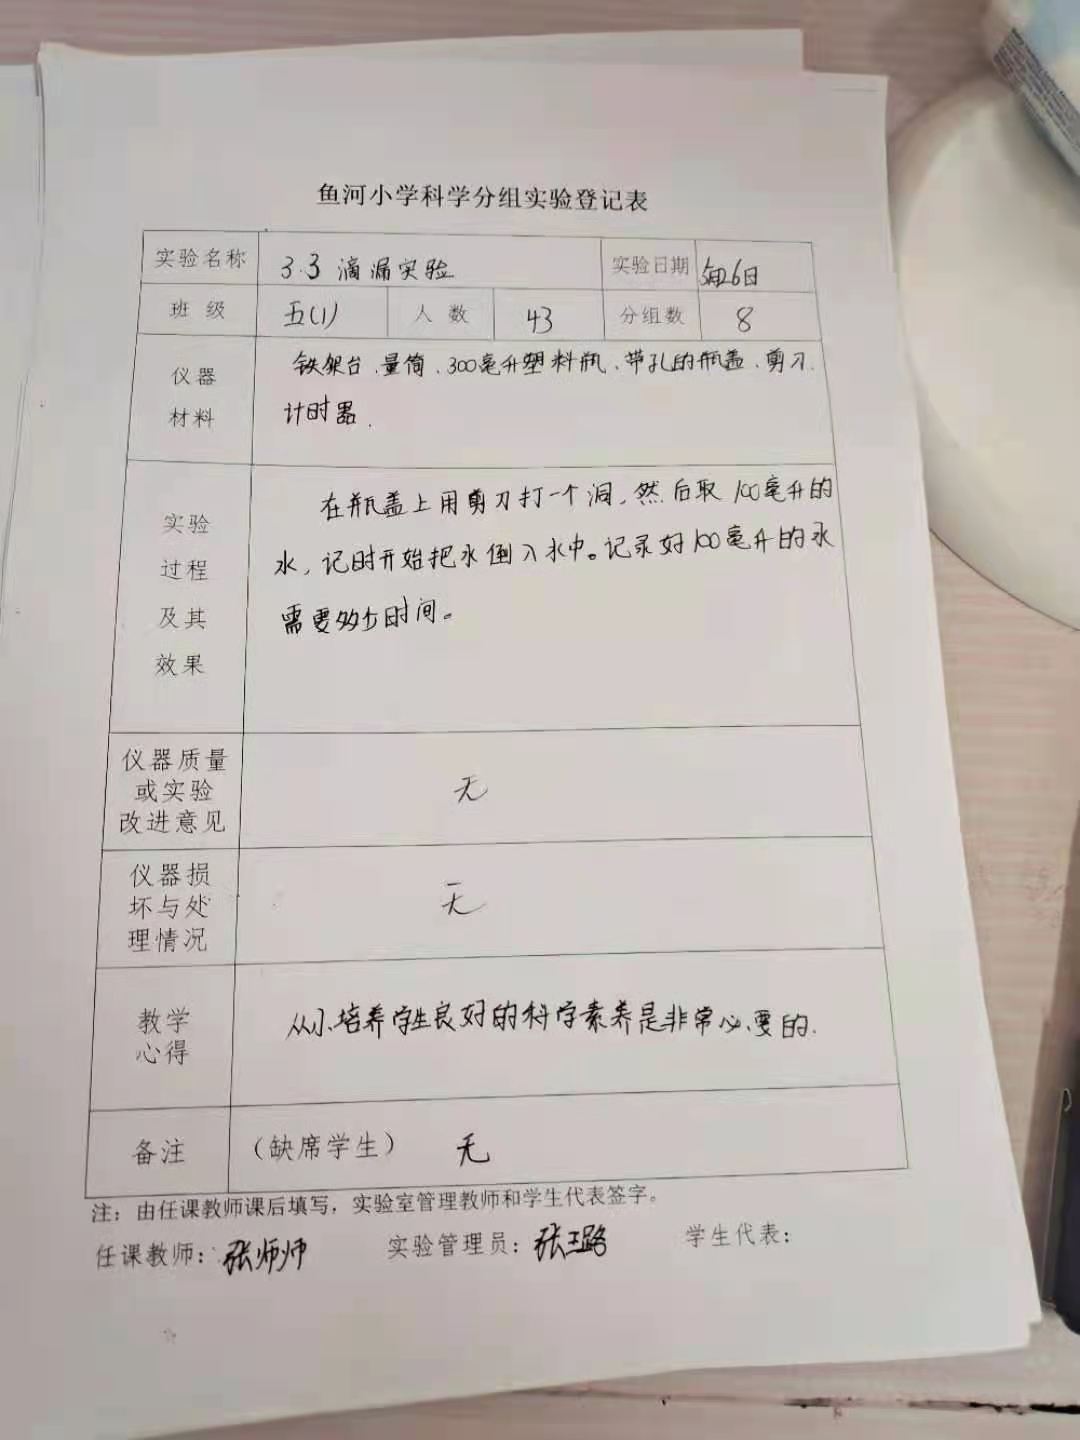 鱼河小学科学分组实验登记表
实验名称 3.3 滴漏实验 实验日期 5月26日
班 级 五(1) 人 数 43 分组数 8
仪器 铁架台、量筒、300毫升塑料瓶、带孔的瓶盖、剪刀、
材料 计时器.
在瓶盖上用剪刀打一个洞,然后取100毫升的
实验
水,记时开始把水倒入水中。记录好100毫升的水
过程
需要多少时间。
及其
效果
仪器质量
或实验 无
改进意见
仪器损
坏与处 无
理情况
教学 从小培养学生良好的科学素养是非常必要的.
心得
备注 (缺席学生) 无
注:由任课教师课后填写,实验室管理教师和学生代表签字。
任课教师:张师师 实验管理员:张 学生代表: